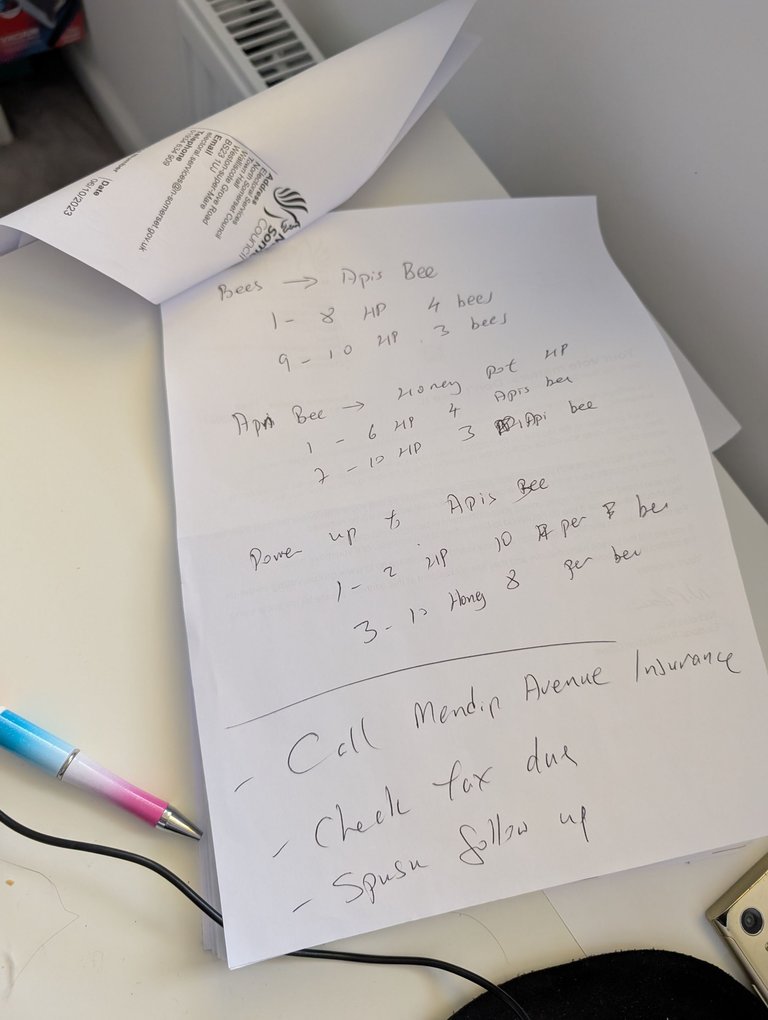 Address
North Somerset Council
Electoral Services
Town Hall
Walliscote Grove Road
Weston-super-Mare
BS23 1UJ
Email
electoral.services@n-somerset.gov.uk
Telephone
01934 634 909
Date
06/10/2023
Bees → Apis Bee
1 - 8 HP 4 bees
9 - 10 HP 3 bees
Apis Bee → Honey pot HP
1 - 6 HP 4 Apis bee
7 - 10 HP 3 Api bee
Power up to Apis Bee
1 - 2 HP 10 per bee
3 - 10 Hong 8 per bee
- Call Mendip Avenue Insurance
- Check tax due
- Spusu follow up